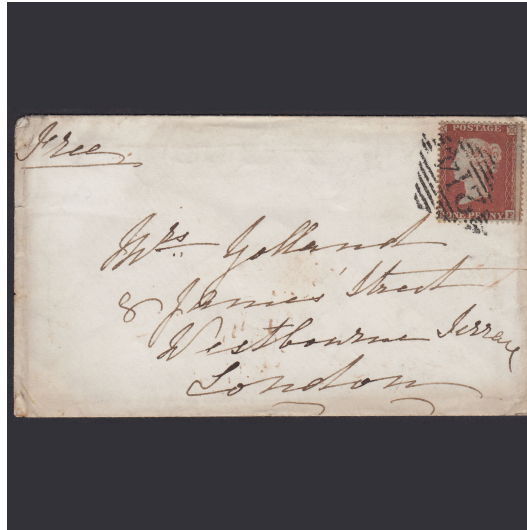 Free
POSTAGE
ONE PENNY
Mrs. Golland
8 James Street
Westbourne Terrace
London